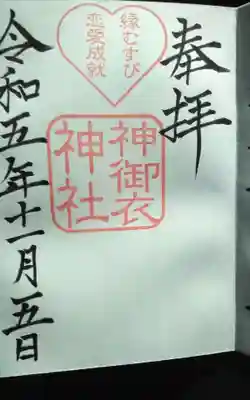 奉拝
縁むすび
恋愛成就
神御衣
神社
令和五年十一月五日